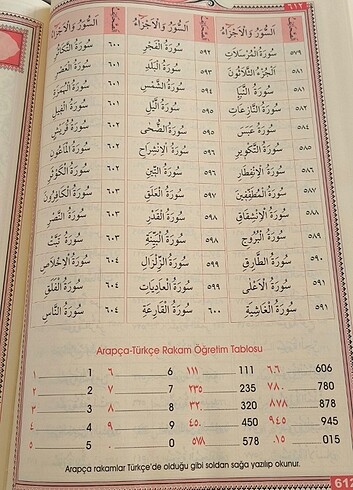 ٦١٢
اَلسُّوَرُ وَالْاَجْزَاءُ اَلسُّوَرُ وَالْاَجْزَاءُ
٥٧٩ سُورَةُ الْمُرْسَلَاتِ ٥٩٢ سُورَةُ الْفَجْرِ ٦٠٠ سُورَةُ التَّكَاثُرِ
٥٨١ اَلْجُزْءُ الثَّلَاثُونَ ٥٩٣ سُورَةُ الْبَلَدِ ٦٠١ سُورَةُ الْعَصْرِ
٥٨١ سُورَةُ النَّبَأِ ٥٩٤ سُورَةُ الشَّمْسِ ٦٠١ سُورَةُ الْهُمَزَةِ
٥٨٢ سُورَةُ النَّازِعَاتِ ٥٩٥ سُورَةُ الَّيْلِ ٦٠١ سُورَةُ الْفِيلِ
٥٨٤ سُورَةُ عَبَسَ ٥٩٥ سُورَةُ الضُّحٰى ٦٠٢ سُورَةُ قُرَيْشٍ
٥٨٥ سُورَةُ التَّكْوِيرِ ٥٩٦ سُورَةُ الْاِنْشِرَاحِ ٦٠٢ سُورَةُ الْمَاعُونِ
٥٨٦ سُورَةُ الْاِنْفِطَارِ ٥٩٦ سُورَةُ التِّينِ ٦٠٢ سُورَةُ الْكَوْثَرِ
٥٨٧ سُورَةُ الْمُطَفِّفِينَ ٥٩٧ سُورَةُ الْعَلَقِ ٦٠٣ سُورَةُ الْكَافِرُونَ
٥٨٨ سُورَةُ الْاِنْشِقَاقِ ٥٩٨ سُورَةُ الْقَدْرِ ٦٠٣ سُورَةُ النَّصْرِ
٥٨٩ سُورَةُ الْبُرُوجِ ٥٩٨ سُورَةُ الْبَيِّنَةِ ٦٠٣ سُورَةُ تَبَّتْ
٥٩٠ سُورَةُ الطَّارِقِ ٥٩٩ سُورَةُ الزِّلْزَالِ ٦٠٤ سُورَةُ الْاِخْلَاصِ
٥٩١ سُورَةُ الْاَعْلٰى ٥٩٩ سُورَةُ الْعَادِيَاتِ ٦٠٤ سُورَةُ الْفَلَقِ
٥٩١ سُورَةُ الْغَاشِيَةِ ٦٠٠ سُورَةُ الْقَارِعَةِ ٦٠٤ سُورَةُ النَّاسِ
Arapça-Türkçe Rakam Öğretim Tablosu
١ 1 ٦ 6 ١١١ 111 ٦٠٦ 606
٢ 2 ٧ 7 ٢٣٥ 235 ٧٨٠ 780
٣ 3 ٨ 8 ٣٢٠ 320 ٨٧٨ 878
٤ 4 ٩ 9 ٤٥٠ 450 ٩٤٥ 945
٥ 5 ٠ 0 ٥٧٨ 578 ٠١٥ 015
Arapça rakamlar Türkçe'de olduğu gibi soldan sağa yazılıp okunur.
612